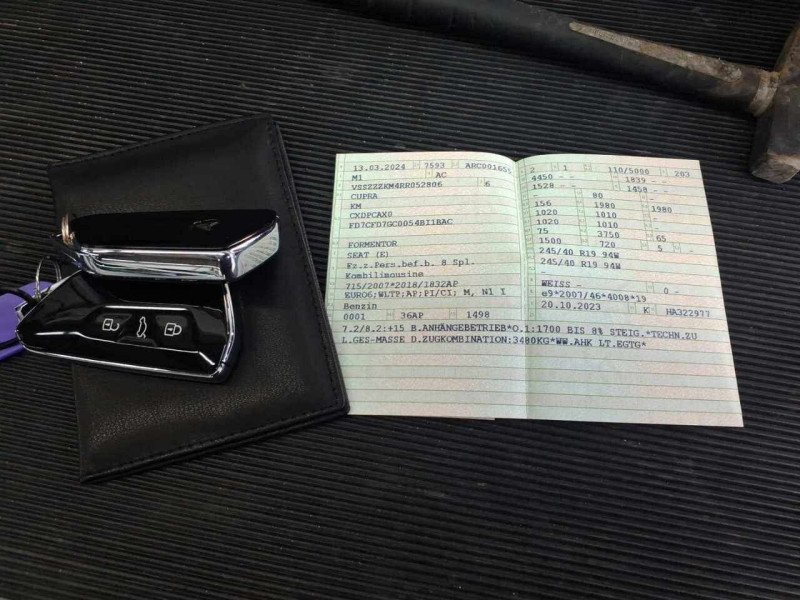 13.03.2024 7593 ARC001655
M1 AC
VSSZZZKM4RR052806 6
CUPRA
KM
CXDPCAX0
FD7CFD7GC0054BI1BAC
FORMENTOR
SEAT (E)
Fz.z.Pers.bef.b. 8 Spl.
Kombilimousine
715/2007*2018/1832AP
EURO6;WLTP;AP;PI/CI; M, N1 I
Benzin
0001 36AP 1498
2 1 110/5000 203
4450 - - 1839 - -
1528 - - 1458 - -
- 80
156 1980 1980
1020 1010
1020 1010 -
75 3750 65
1500 720 5 -
245/40 R19 94W
245/40 R19 94W
-
WEISS - 0 -
e9*2007/46*4008*19
20.10.2023 K HA322977
7.2/8.2:+15 B.ANHÄNGEBETRIEB*O.1:1700 BIS 8% STEIG.*TECHN.ZU
L.GES-MASSE D.ZUGKOMBINATION:3480KG*WW.AHK LT.EGTG*